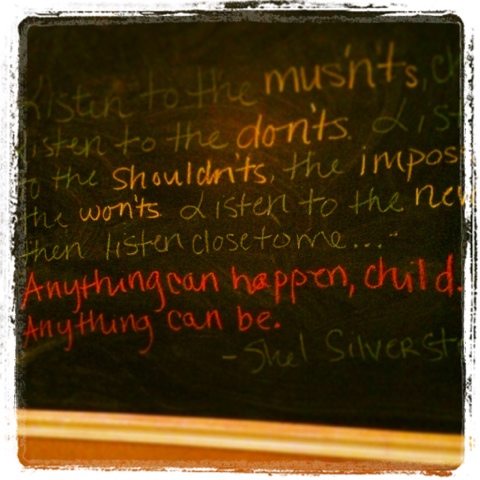 Listen to the mus'n'ts, ch
Listen to the don'ts. List
to the shouldn'ts, the impos
the won'ts. Listen to the nev
then listen close to me..."
Anything can happen, child.
Anything can be.
- Shel Silverste